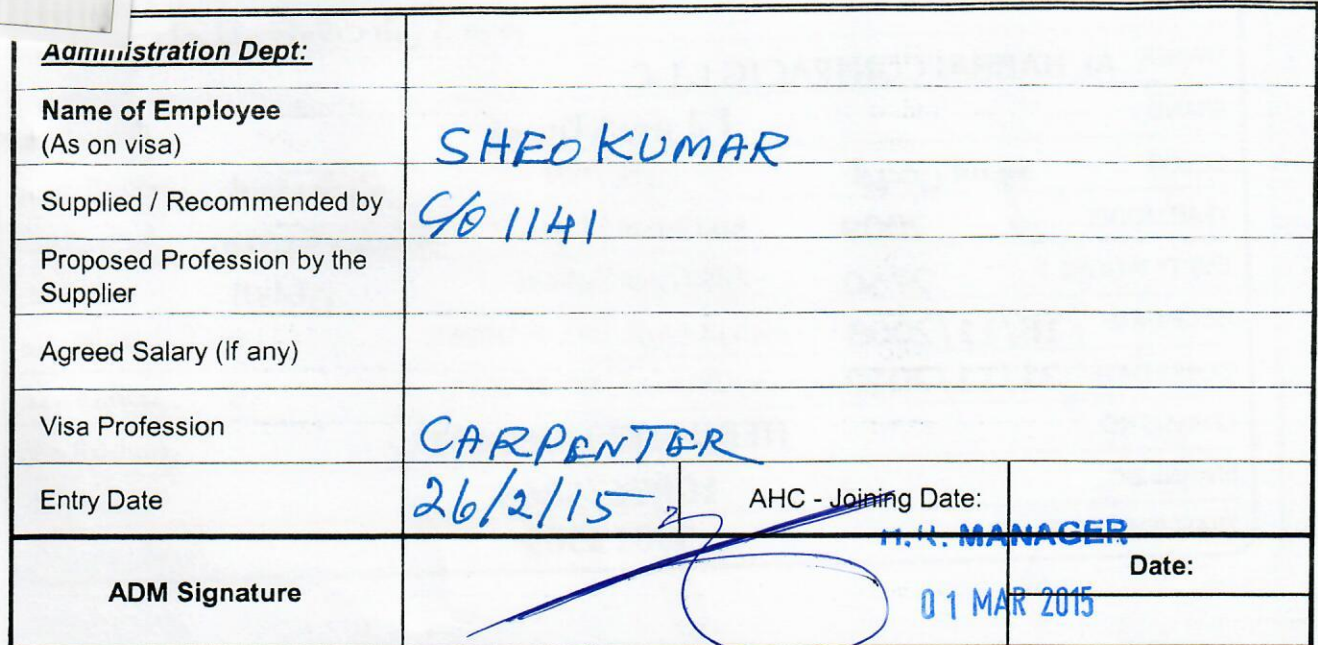 Administration Dept:
Name of Employee
(As on visa)
SHEO KUMAR
Supplied / Recommended by
C/O 1141
Proposed Profession by the
Supplier
Agreed Salary (If any)
Visa Profession
CARPENTER
Entry Date
26/2/15
AHC - Joining Date:
H.R. MANAGER
ADM Signature
Date:
01 MAR 2015